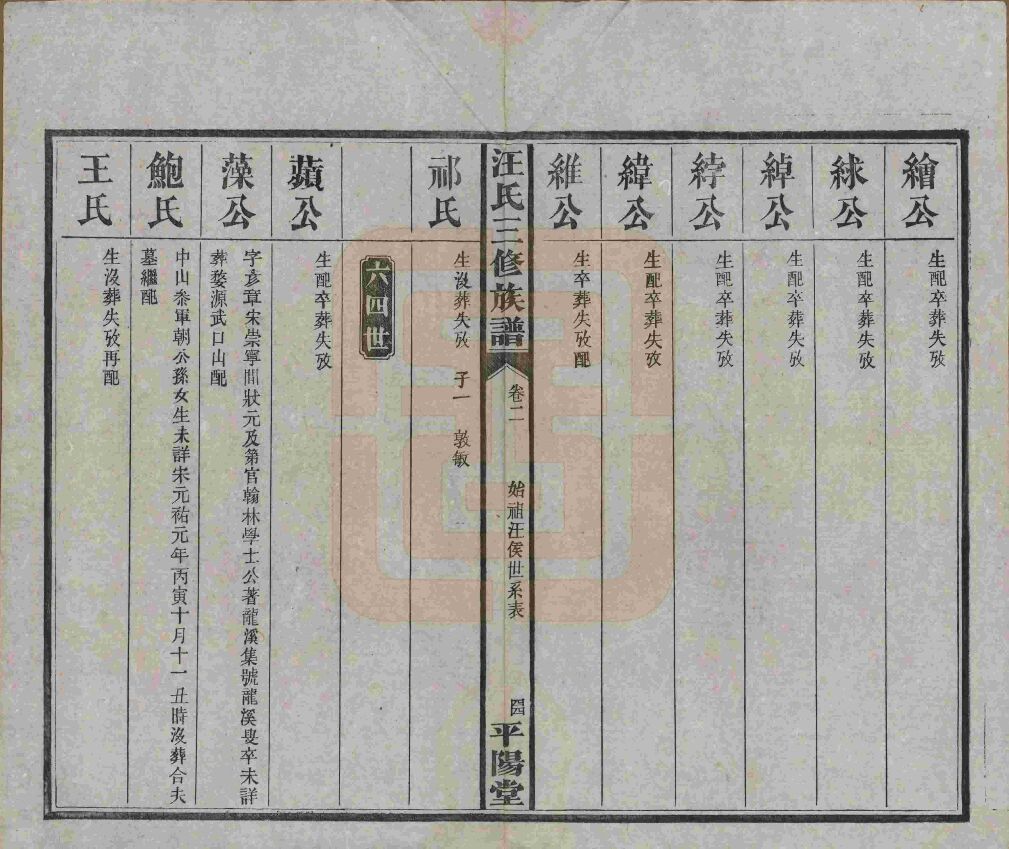 繪公
生配卒葬失攷
絿公
生配卒葬失攷
綽公
生配卒葬失攷
綍公
生配卒葬失攷
緯公
生配卒葬失攷
維公
生卒葬失攷配
汪氏三修族譜
卷二
始祖汪侯世系表
四四
平陽堂
祁氏
生沒葬失攷 子一 敦敏
六四世
蘋公
生配卒葬失攷
藻公
字彥章宋崇寧間狀元及第官翰林學士公著龍溪集號龍溪叟卒未詳
葬婺源武口山配
鮑氏
中山叅軍朝公孫女生未詳宋元祐元年丙寅十月十一丑時沒葬合夫
墓繼配
王氏
生沒葬失攷再配